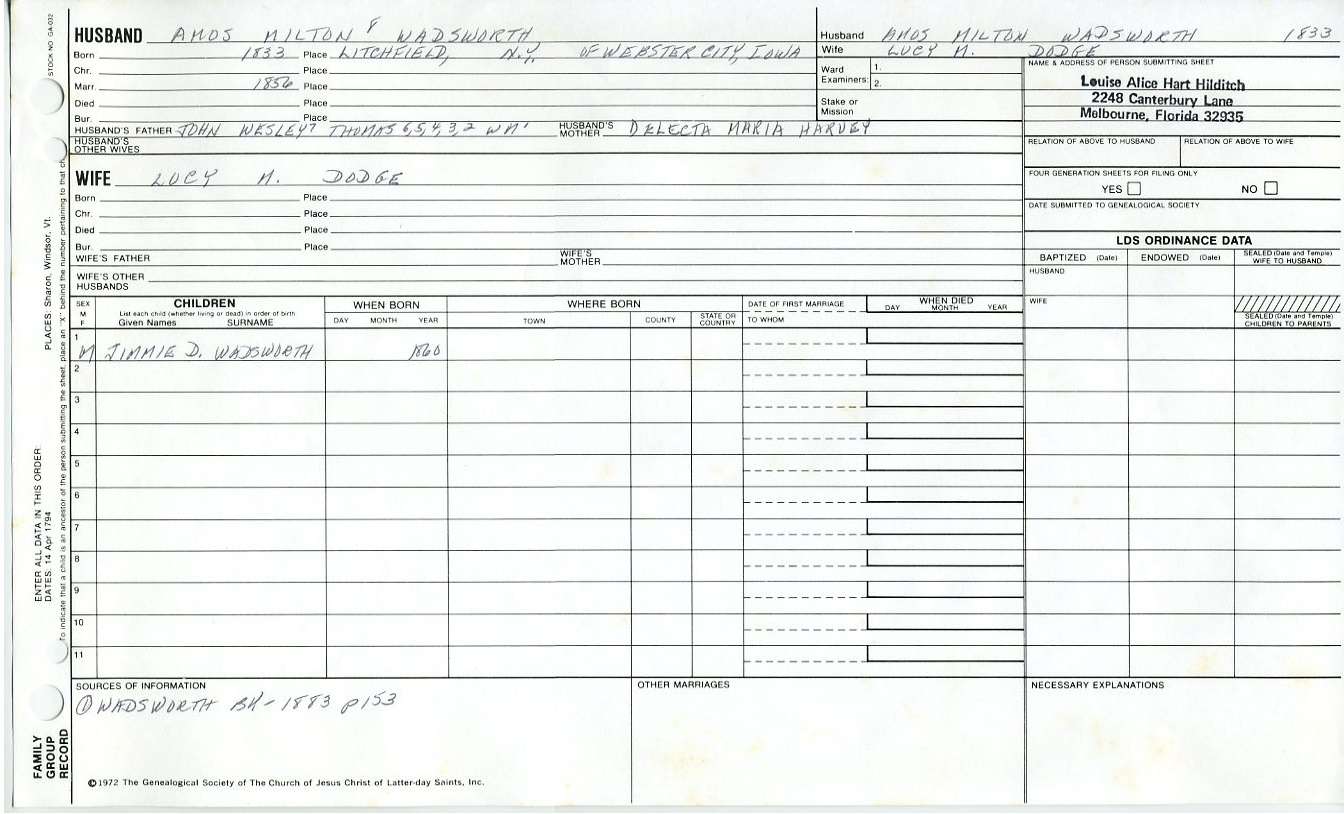 STOCK NO. GA-032
HUSBAND AMOS MILTON 8 WADSWORTH
Born 1833 Place LITCHFIELD, N.Y. OF WEBSTER CITY, IOWA
Chr. Place
Marr. 1856 Place
Died Place
Bur. Place
HUSBAND'S FATHER JOHN WESLEY7 THOMAS 6,5,4,3,2 WM1 HUSBAND'S MOTHER DELECTA MARIA HARVEY
HUSBAND'S OTHER WIVES
WIFE LUCY M. DODGE
Born Place
Chr. Place
Died Place
Bur. Place
WIFE'S FATHER WIFE'S MOTHER
WIFE'S OTHER HUSBANDS
Husband AMOS MILTON WADSWORTH 1833
Wife LUCY M. DODGE
Ward Examiners: 1. 2.
Stake or Mission
NAME & ADDRESS OF PERSON SUBMITTING SHEET
Louise Alice Hart Hilditch
2248 Canterbury Lane
Melbourne, Florida 32935
RELATION OF ABOVE TO HUSBAND RELATION OF ABOVE TO WIFE
FOUR GENERATION SHEETS FOR FILING ONLY
YES NO
DATE SUBMITTED TO GENEALOGICAL SOCIETY
LDS ORDINANCE DATA
BAPTIZED (Date) ENDOWED (Date) SEALED (Date and Temple) WIFE TO HUSBAND
HUSBAND
WIFE
SEALED (Date and Temple) CHILDREN TO PARENTS
SEX M F
CHILDREN
List each child (whether living or dead) in order of birth
Given Names SURNAME
WHEN BORN
DAY MONTH YEAR
WHERE BORN
TOWN COUNTY STATE OR COUNTRY
DATE OF FIRST MARRIAGE
TO WHOM
WHEN DIED
DAY MONTH YEAR
1
M JIMMIE D. WADSWORTH 1860
2
3
4
5
6
7
8
9
10
11
SOURCES OF INFORMATION
① WADSWORTH BK - 1883 p153
OTHER MARRIAGES
NECESSARY EXPLANATIONS
©1972 The Genealogical Society of The Church of Jesus Christ of Latter-day Saints, Inc.
FAMILY GROUP RECORD
ENTER ALL DATA IN THIS ORDER:
DATES: 14 Apr 1794 PLACES: Sharon, Windsor, Vt.
To indicate that a child is an ancestor of the person submitting the sheet, place an "X" behind the number pertaining to that